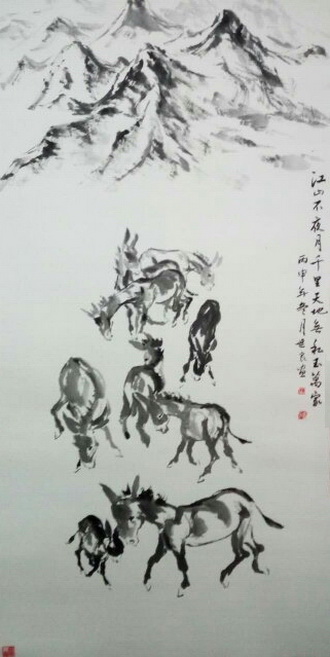 江山不夜月千里天地無私玉萬家
丙申年冬月世良畫